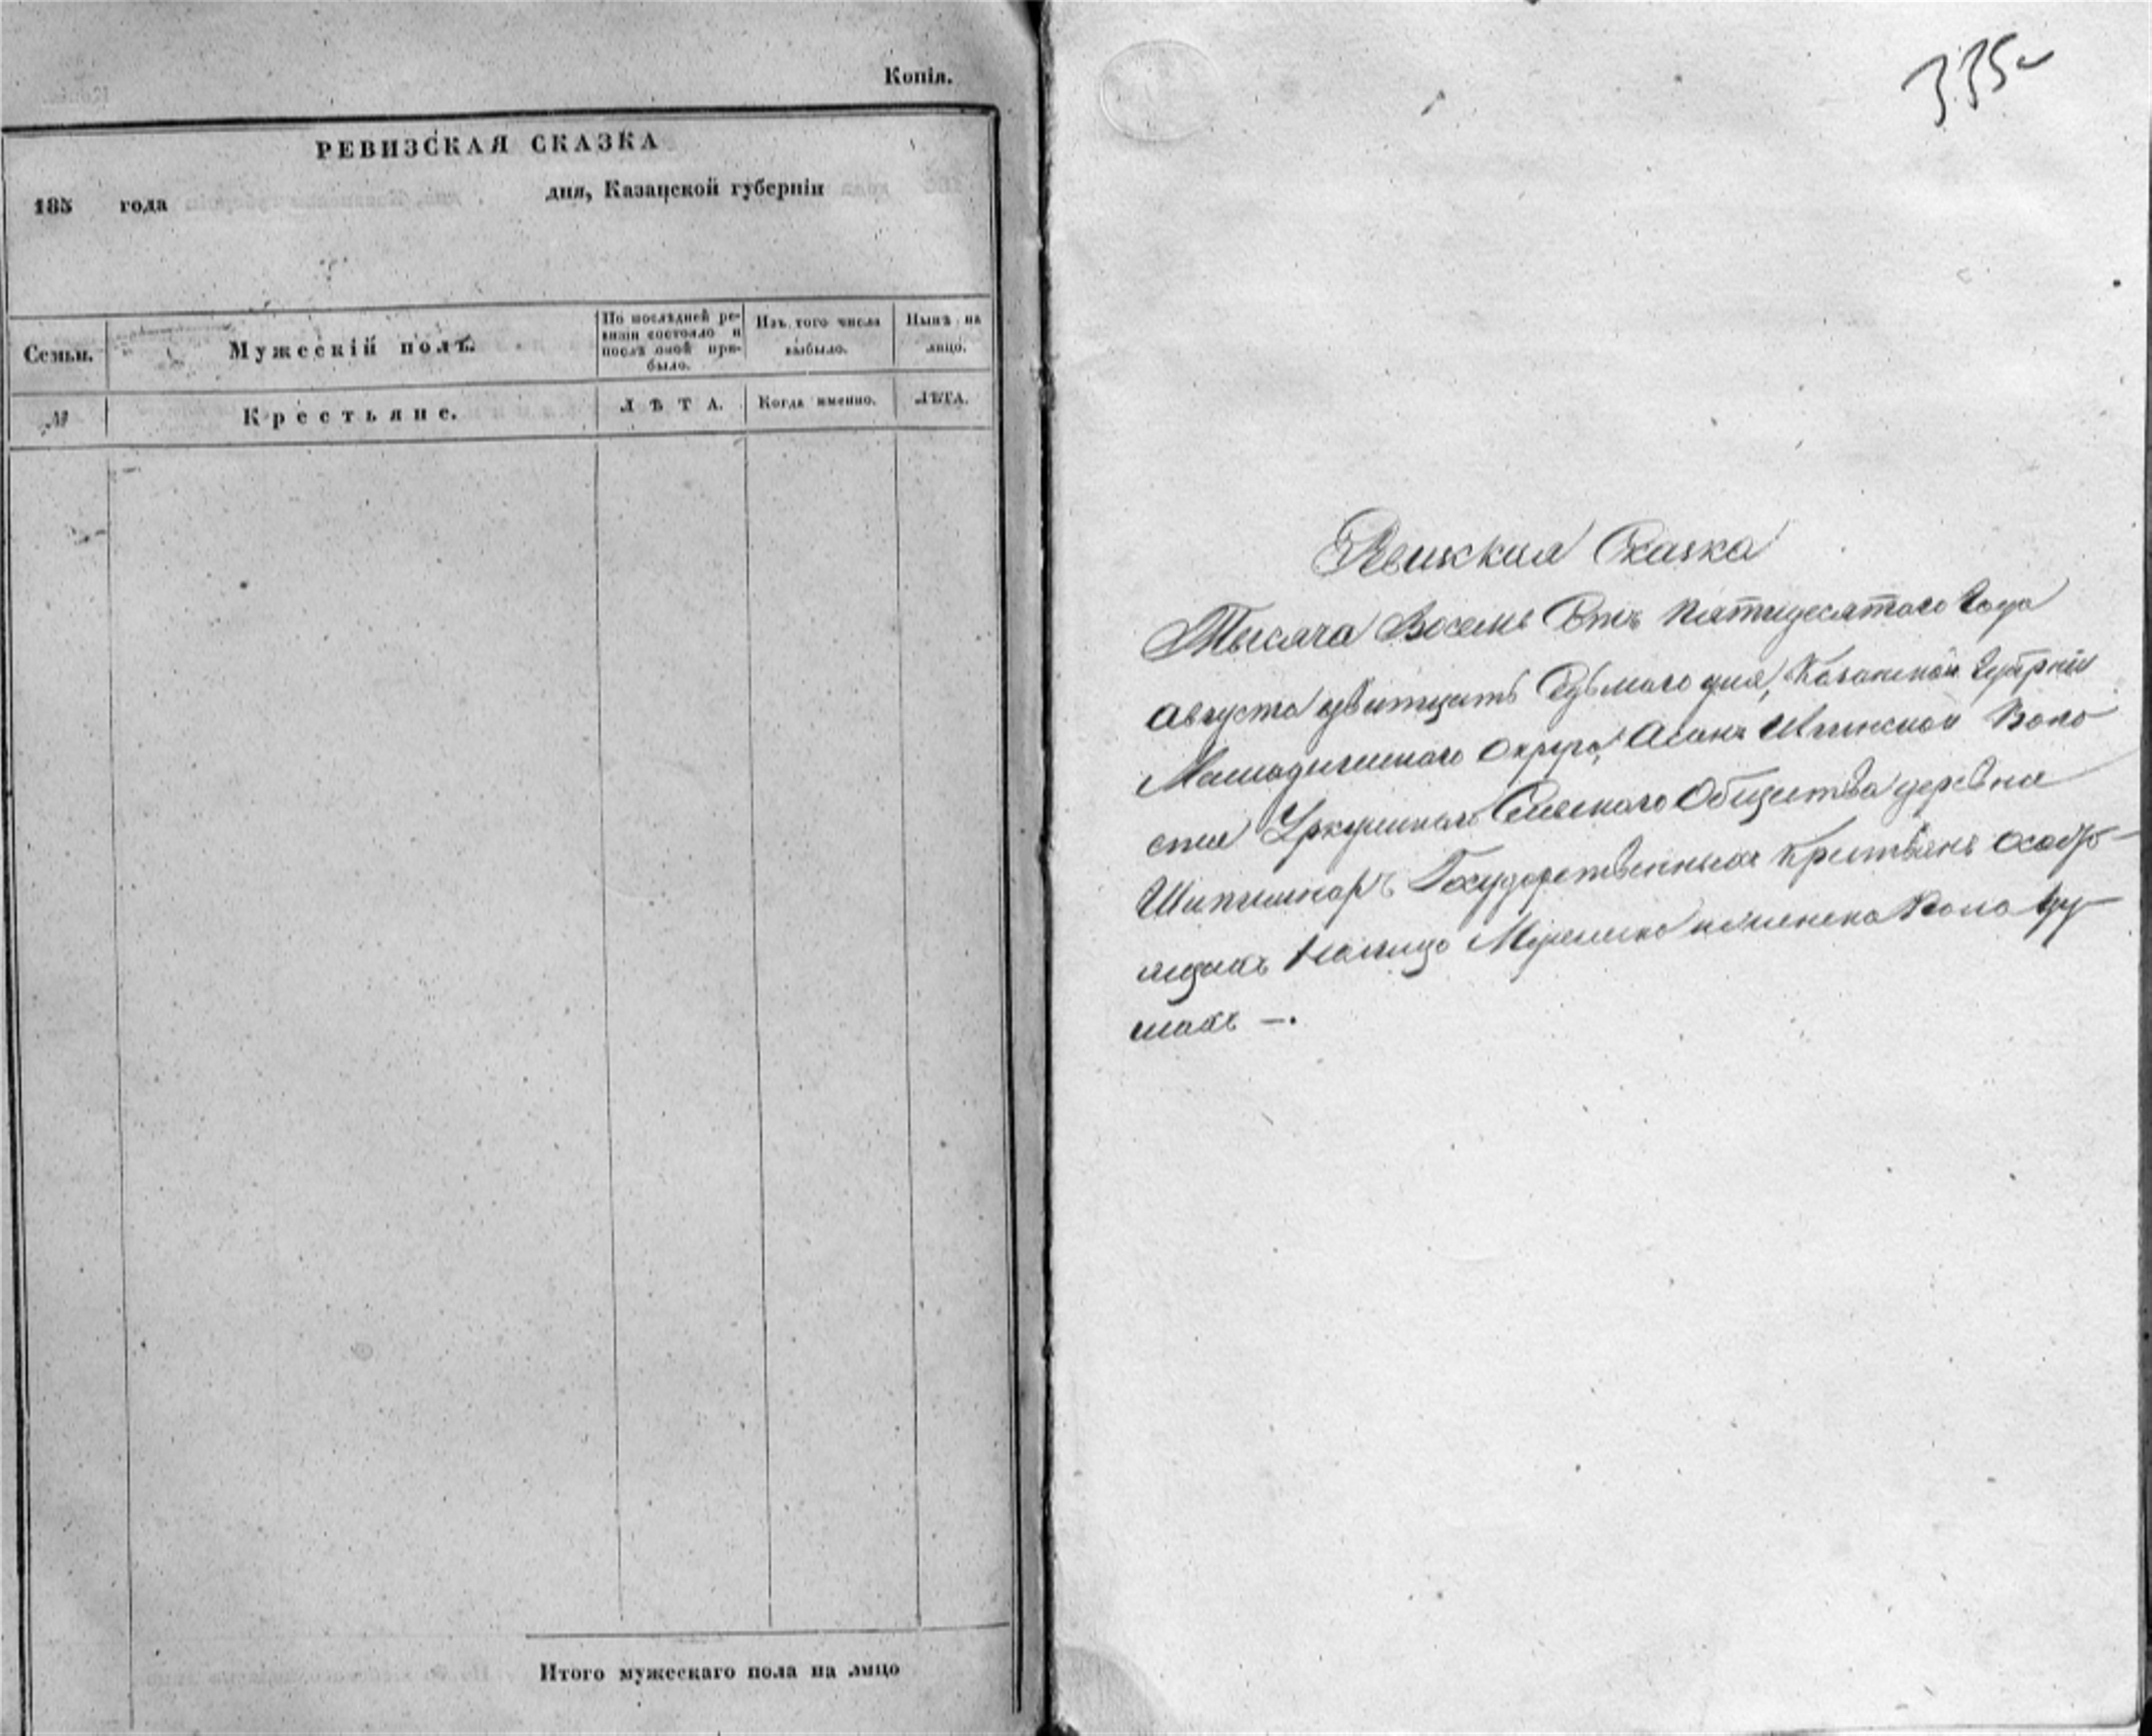 Копія.
РЕВИЗСКАЯ СКАЗКА
185 года дня, Казанской губерніи
Семьи.
Мужескій полъ.
По послѣдней ре-
визіи состояло и
послѣ оной при-
было.
Изъ того числа
выбыло.
Нынѣ на
лицо.
№
Крестьяне.
ЛѢТА.
Когда именно.
ЛѢТА.
Итого мужескаго пола на лицо
335
Ревизская Сказка
Тысяча Восемь Сотъ пятидесятого Года
Августа дватцать Седьмаго дня, Казанской Губерніи
Мамадышскаго Округа, Асанъ Илгинской Воло
сти Уркушскаго Сельскаго Общества деревни
Шепшенарь Государственныхъ Крестьянъ о состо-
ящихъ Налицо Мужеска и женска Пола ду-
шахъ —.